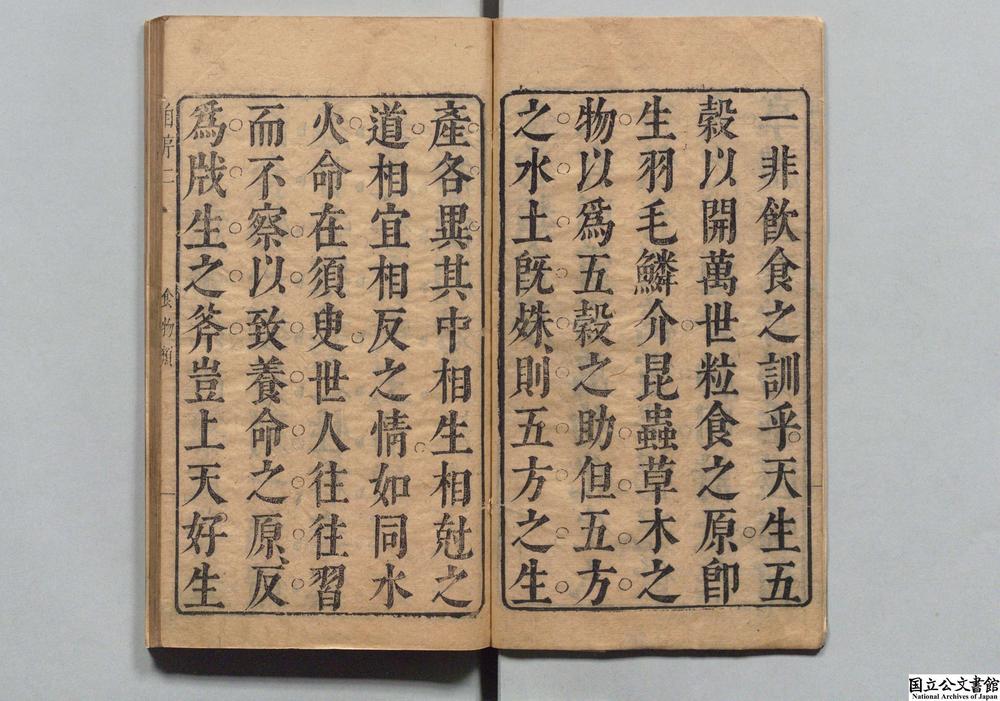 一非飮食之訓乎天生五
穀以開萬世粒食之原卽
生羽毛鱗介昆蟲草木之
物以爲五穀之助但五方
之水土旣殊、則五方之生
產各異其中相生相尅之
道相宜相反之情如同水
火命在須臾世人往往習
而不察以致養命之原、反
爲戕生之斧豈上天好生
自序 二
食物類
国立公文書館
National Archives of Japan